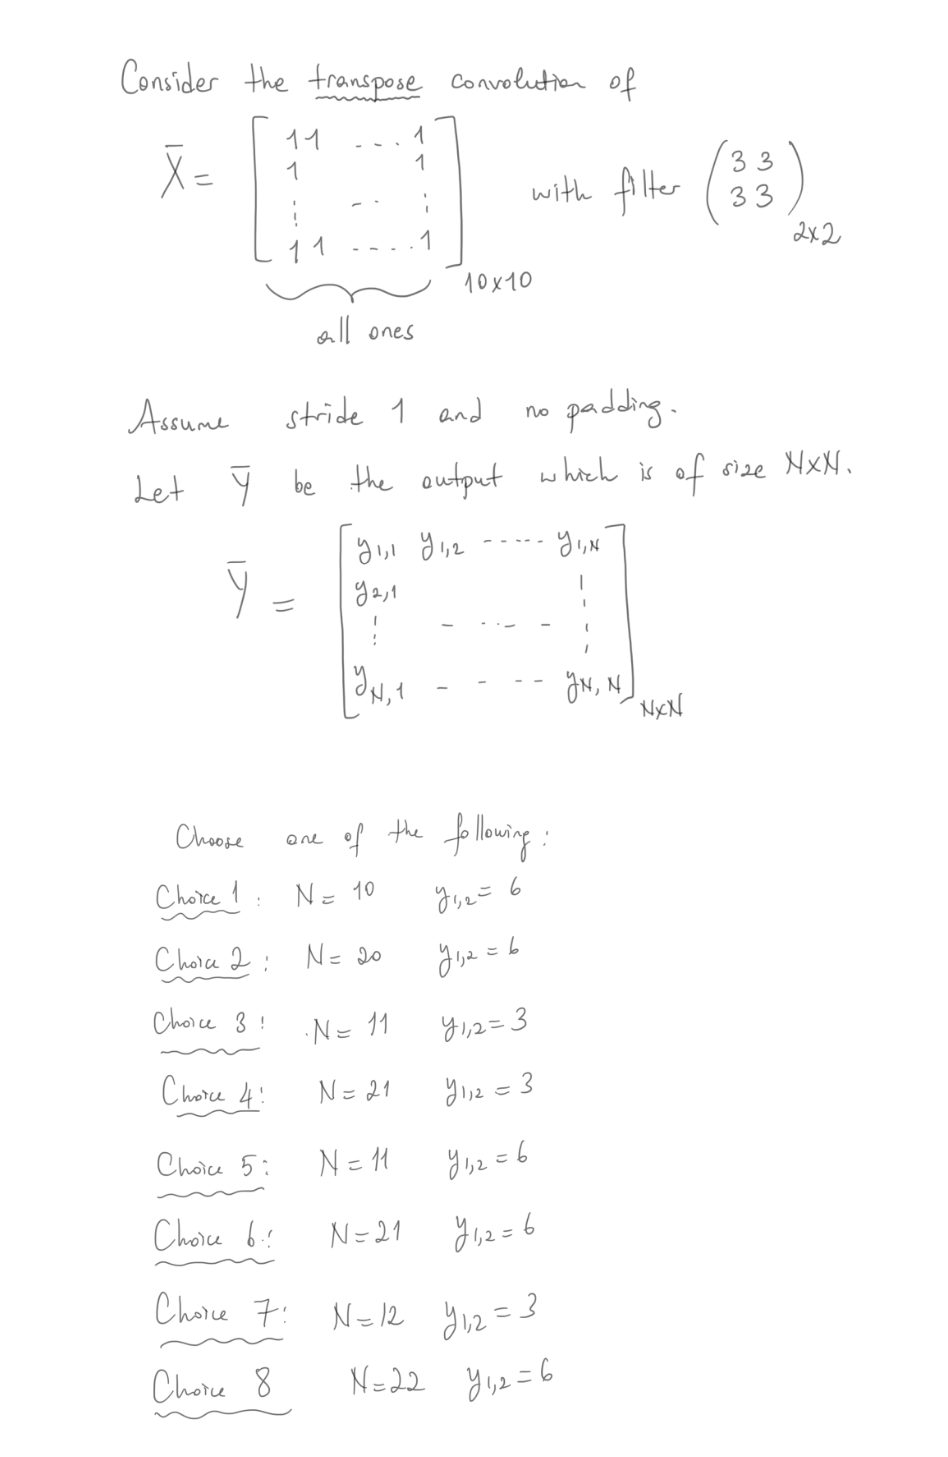 Consider the transpose convolution of
X̄ = [ 1 1 ... 1
1 1
⋮ -.. ⋮
1 1 .... 1 ] 10x10 with filter ( 3 3
3 3 ) 2x2
all ones
Assume stride 1 and no padding.
Let Ȳ be the output which is of size NxN.
Ȳ = [ y1,1 y1,2 ----- y1,N
y2,1
⋮ - ..- - ⋮
yN,1 - - -- yN,N ] NxN
Choose one of the following:
Choice 1: N = 10 y1,2 = 6
Choice 2: N = 20 y1,2 = 6
Choice 3: N = 11 y1,2 = 3
Choice 4: N = 21 y1,2 = 3
Choice 5: N = 11 y1,2 = 6
Choice 6: N = 21 y1,2 = 6
Choice 7: N = 12 y1,2 = 3
Choice 8 N = 22 y1,2 = 6